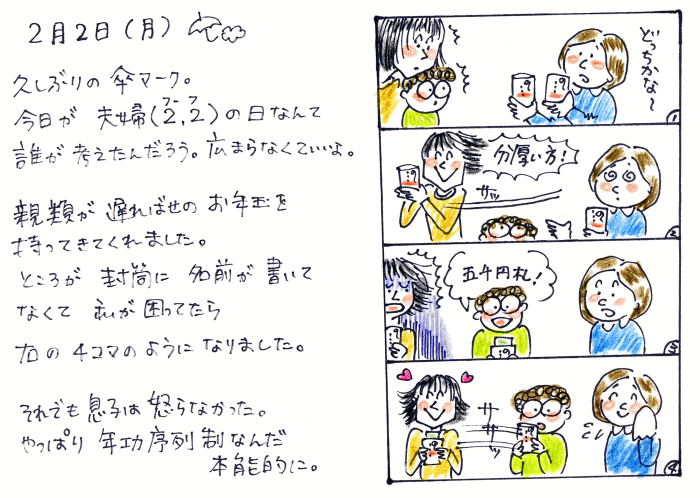 2月2日(月)
久しぶりの 傘マーク。
今日が 夫婦(2,2)の日なんて
フーフ
誰が 考えたんだろう。広まらなくていいよ。
親類が 遅ればせの お年玉を
持ってきてくれました。
ところが 封筒に 名前が 書いて
なくて 私が 困ってたら
右の4コマのようになりました。
それでも息子は 怒らなかった。
やっぱり 年功序列制なんだ
本能的に。
どっちかな〜
1
分厚い方!
サッ
2
五千円札!
3
ササッ
4